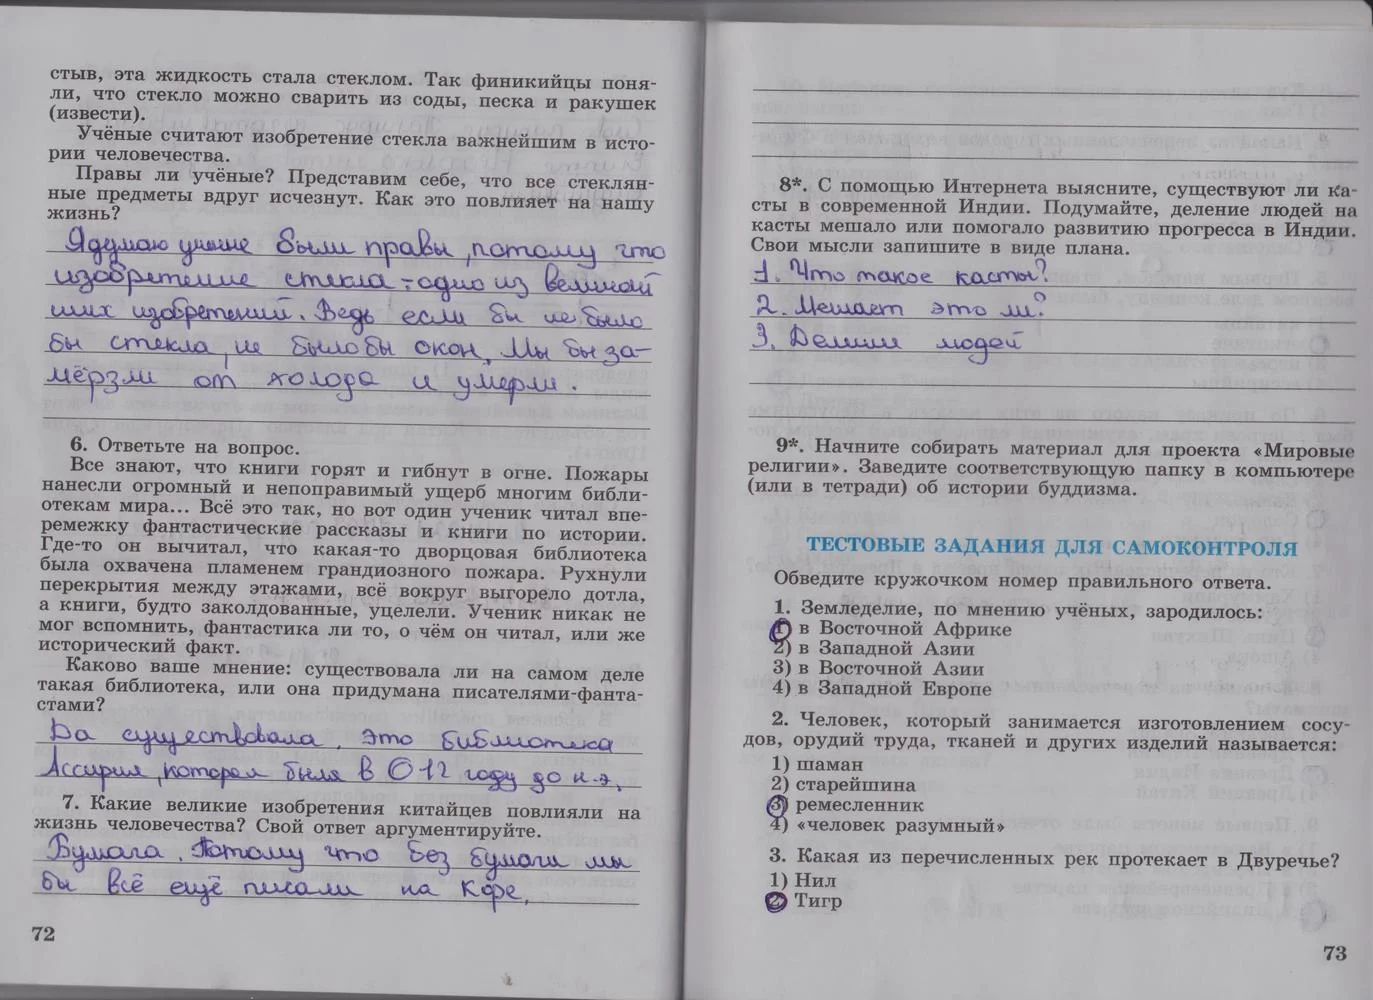 стыв, эта жидкость стала стеклом. Так финикийцы поня-
ли, что стекло можно сварить из соды, песка и ракушек
(извести).
Учёные считают изобретение стекла важнейшим в исто-
рии человечества.
Правы ли учёные? Представим себе, что все стеклян-
ные предметы вдруг исчезнут. Как это повлияет на нашу
жизнь?
Я думаю учёные были правы, потому что
изобретение стекла - одно из великой
ших изобретений. Ведь если бы не было
бы стекла, не было бы окон. Мы бы за-
мёрзли от холода и умерли.
6. Ответьте на вопрос.
Все знают, что книги горят и гибнут в огне. Пожары
нанесли огромный и непоправимый ущерб многим библи-
отекам мира... Всё это так, но вот один ученик читал впе-
ремежку фантастические рассказы и книги по истории.
Где-то он вычитал, что какая-то дворцовая библиотека
была охвачена пламенем грандиозного пожара. Рухнули
перекрытия между этажами, всё вокруг выгорело дотла,
а книги, будто заколдованные, уцелели. Ученик никак не
мог вспомнить, фантастика ли то, о чём он читал, или же
исторический факт.
Каково ваше мнение: существовала ли на самом деле
такая библиотека, или она придумана писателями-фанта-
стами?
Да существовала, это библиотека
Ассирия, которая была в 612 году до н.э.
7. Какие великие изобретения китайцев повлияли на
жизнь человечества? Свой ответ аргументируйте.
Бумага. Потому что без бумаги мы
бы всё ещё писали на коре.
72
8*. С помощью Интернета выясните, существуют ли ка-
сты в современной Индии. Подумайте, деление людей на
касты мешало или помогало развитию прогресса в Индии.
Свои мысли запишите в виде плана.
1. Что такое касты?
2. Мешает это ли?
3. Делили людей
9*. Начните собирать материал для проекта «Мировые
религии». Заведите соответствующую папку в компьютере
(или в тетради) об истории буддизма.
ТЕСТОВЫЕ ЗАДАНИЯ ДЛЯ САМОКОНТРОЛЯ
Обведите кружочком номер правильного ответа.
1. Земледелие, по мнению учёных, зародилось:
1) в Восточной Африке
2) в Западной Азии
3) в Восточной Азии
4) в Западной Европе
2. Человек, который занимается изготовлением сосу-
дов, орудий труда, тканей и других изделий называется:
1) шаман
2) старейшина
3) ремесленник
4) «человек разумный»
3. Какая из перечисленных рек протекает в Двуречье?
1) Нил
2) Тигр
73